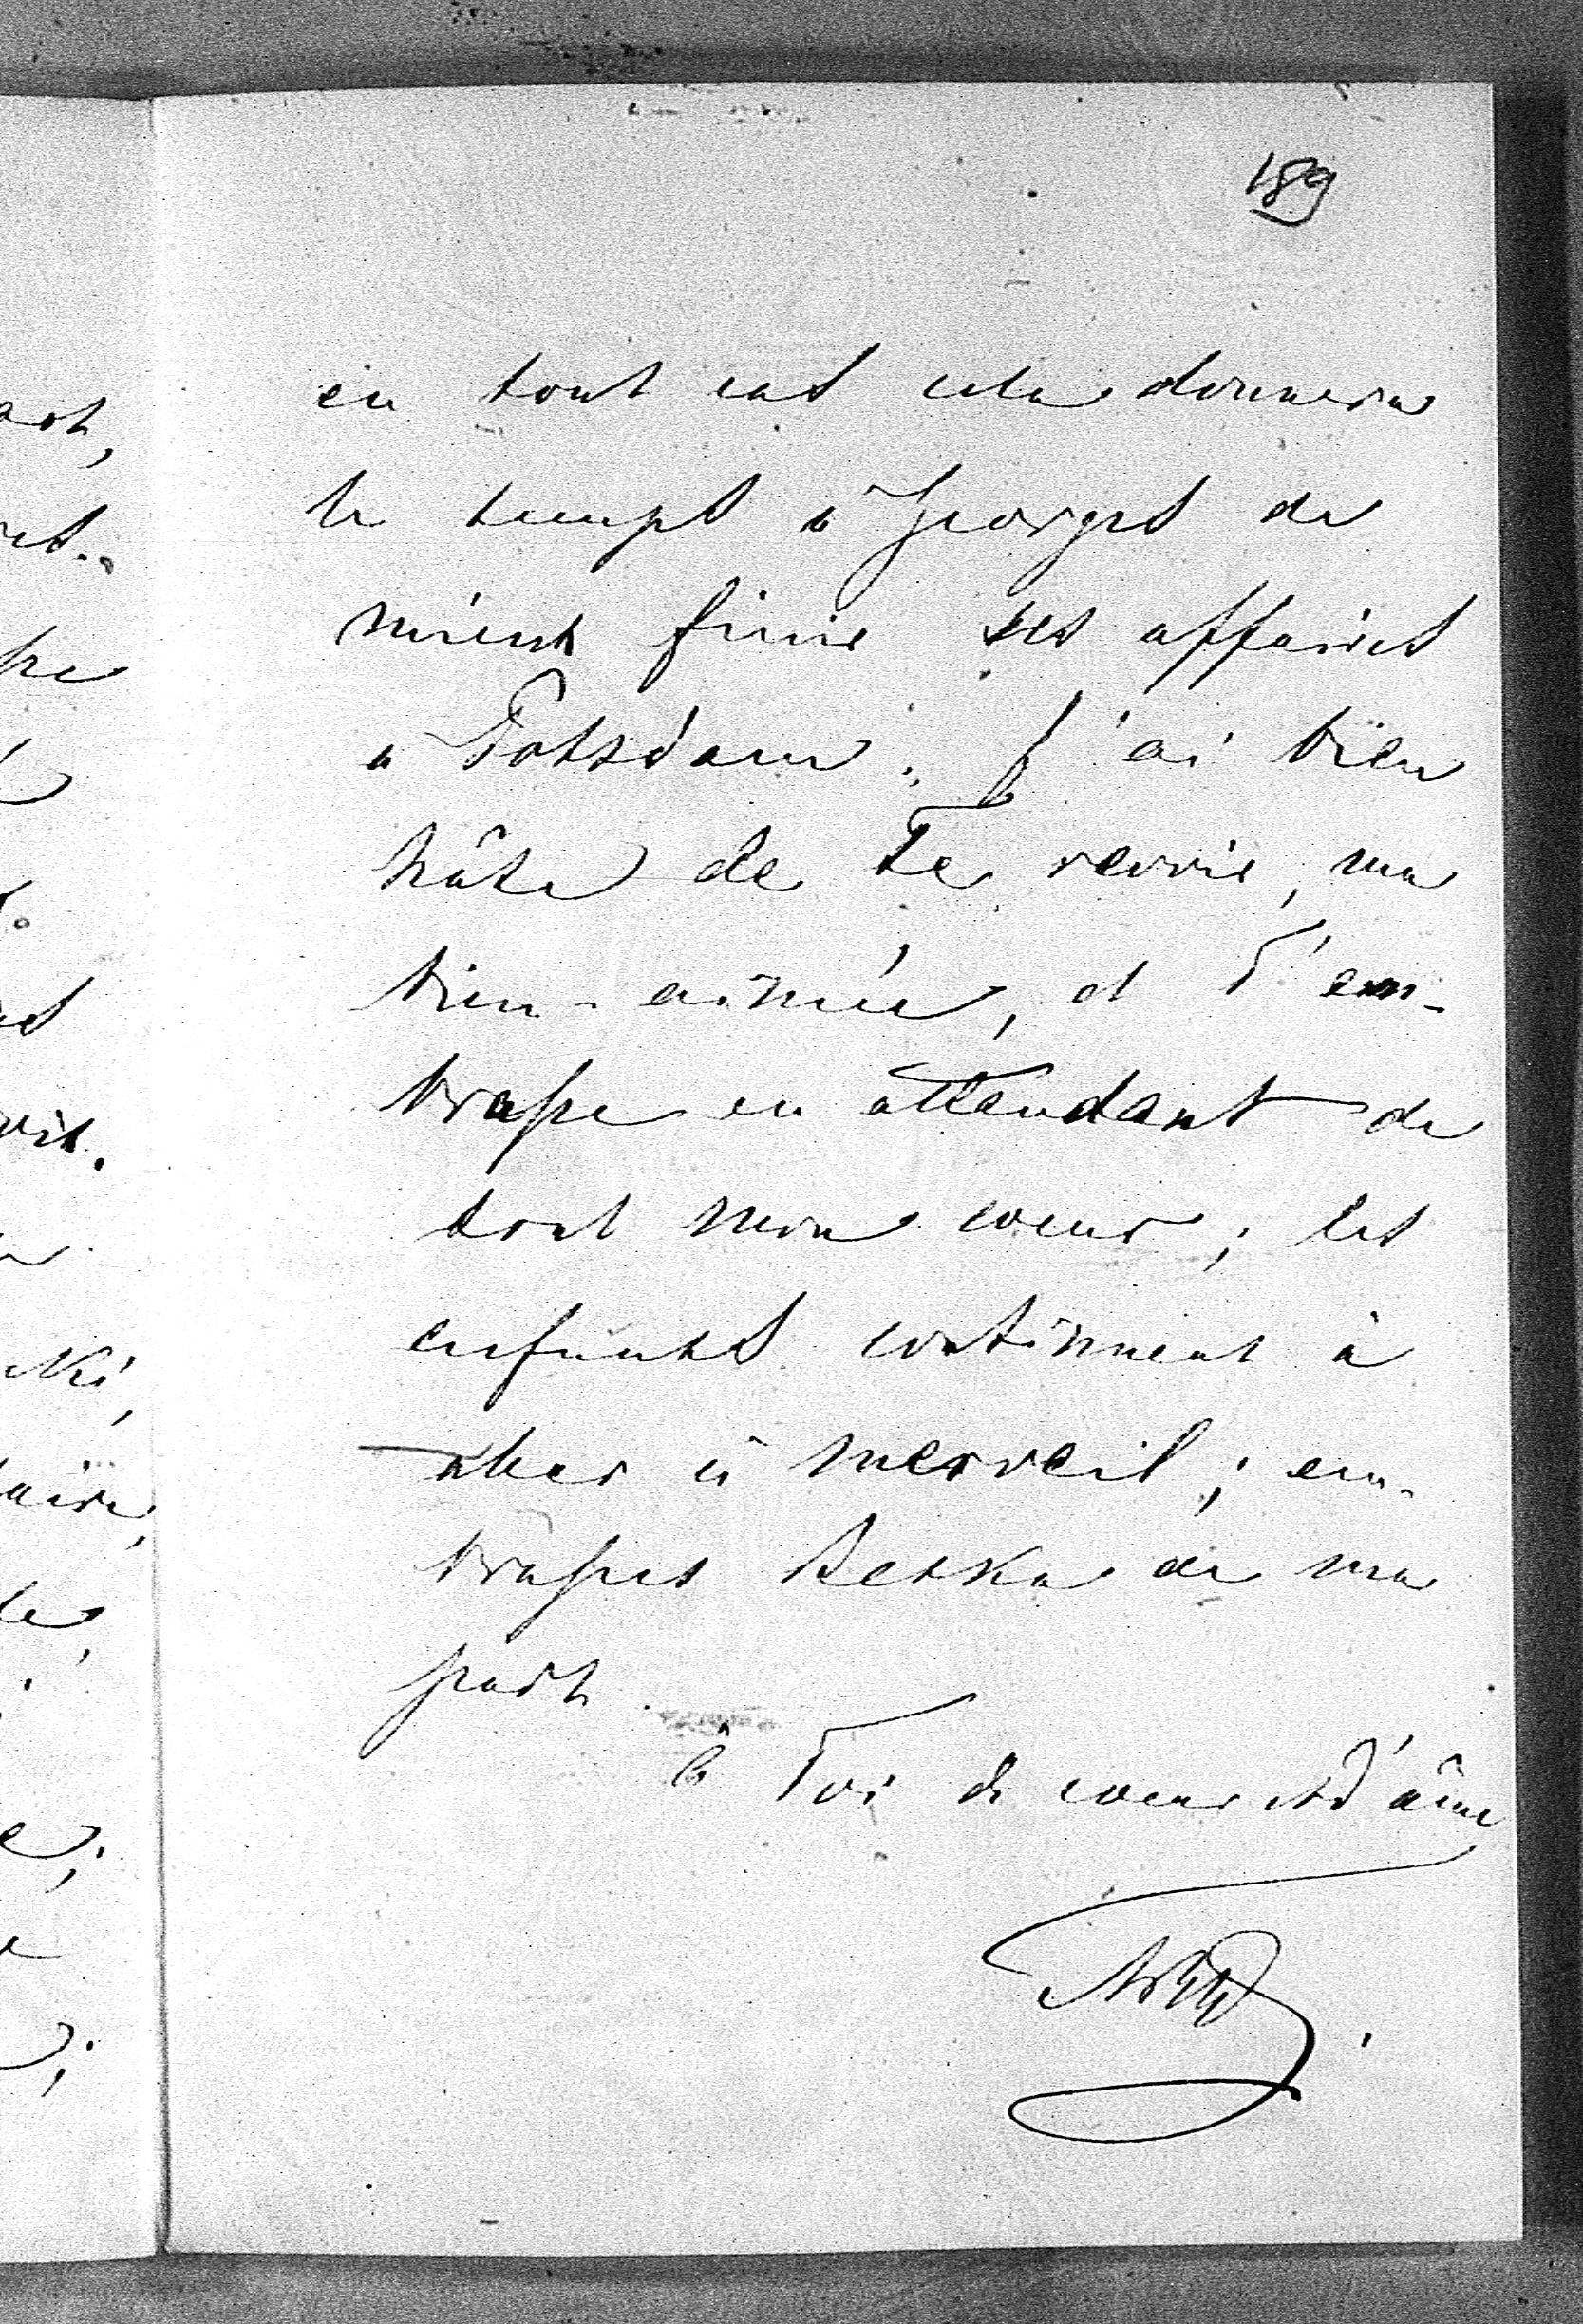 189
en tout cas cela donnera
le temps à Georges de
mieux finir ses affaires
à Potsdam. J'ai bien
hâte de Te revoir, ma
bien-aimée, et T'em-
brasse en attendant de
tout mon coeur; les
enfants continuent à
aller à merveil; em-
brasses de ma
part.
à Toi de coeur et d'âme